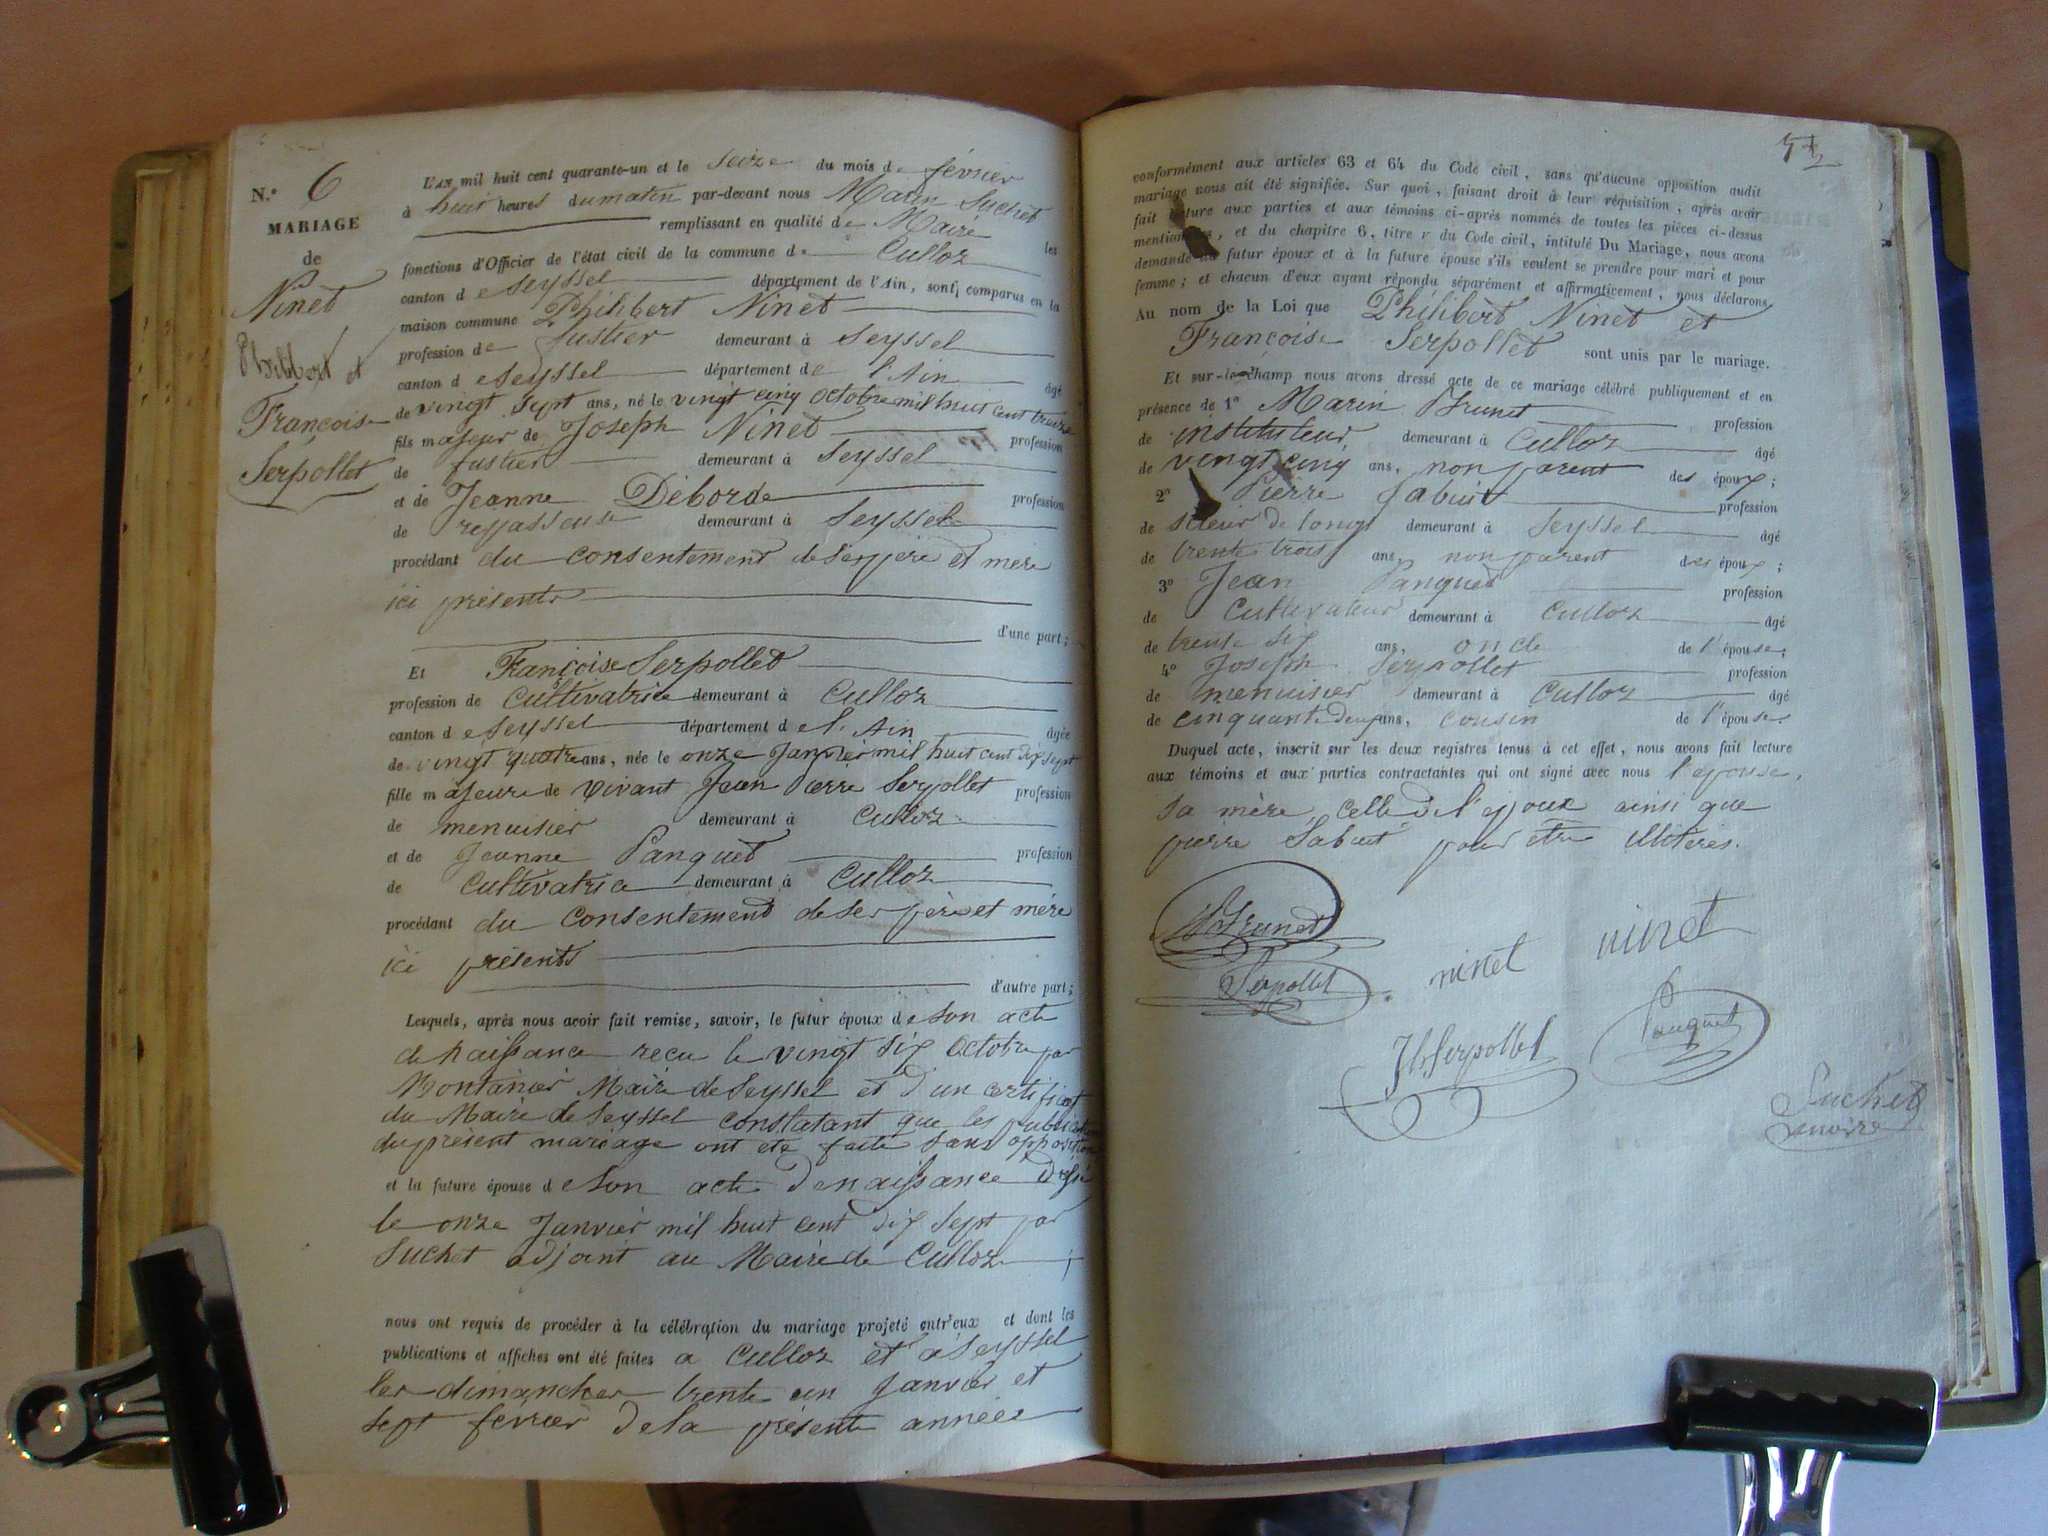 N.° 6
MARIAGE
de
Ninet
Philibert et
Françoise
Serpollet
L'AN mil huit cent quarante-un et le seize du mois de février
à huit heures du matin par-devant nous Marin Suchet
remplissant en qualité de Maire les
fonctions d'Officier de l'état civil de la commune de Culloz
canton de Seyssel département de l'Ain, sont comparus en la
maison commune Philibert Ninet
profession de fustier demeurant à Seyssel
canton de Seyssel département de l'Ain âgé
de vingt sept ans, né le vingt cinq octobre mil huit cent treize
fils majeur de Joseph Ninet profession
de fustier demeurant à Seyssel
et de Jeanne Déborde profession
de repasseuse demeurant à Seyssel
procédant du consentement de ses père et mère
ici présents
d'une part;
Et Françoise Serpollet
profession de Cultivatrice demeurant à Culloz
canton de Seyssel département de l'Ain âgée
de vingt quatre ans, née le onze Janvier mil huit cent dix sept
fille majeure de vivant Jean Pierre Serpollet profession
de menuisier demeurant à Culloz
et de Jeanne Panquet profession
de Cultivatrice demeurant à Culloz
procédant du consentement de ses père et mère
ici présents
d'autre part;
Lesquels, après nous avoir fait remise, savoir, le futur époux de son acte
de naissance recu le vingt six Octobre par
Montanier Maire de Seyssel et d'un certificat
du Maire de Seyssel constatant que les publications
du présent mariage ont été faite sans opposition
et la future épouse de son acte de naissance
le onze Janvier mil huit cent dix sept par
Suchet adjoint au Maire de Culloz ;
nous ont requis de procéder à la célébration du mariage projeté entr'eux et dont les
publications et affiches ont été faites a Culloz et à Seyssel
les dimanches trente un Janvier et
sept février de la présente année
conformément aux articles 63 et 64 du Code civil, sans qu'aucune opposition audit
mariage nous ait été signifiée. Sur quoi, faisant droit à leur réquisition, après avoir
fait lecture aux parties et aux témoins ci-après nommés de toutes les pièces ci-dessus
mentionnées, et du chapitre 6, titre v du Code civil, intitulé Du Mariage, nous avons
demandé au futur époux et à la future épouse s'ils veulent se prendre pour mari et pour
femme; et chacun d'eux ayant répondu séparément et affirmativement, nous déclarons
Au nom de la Loi que Philibert Ninet et
Françoise Serpollet sont unis par le mariage.
Et sur-le-champ nous avons dressé acte de ce mariage célébré publiquement et en
présence de 1° Marin Brunet profession
de instituteur demeurant à Culloz âgé
de vingt cinq ans, non parent des époux;
2° Pierre Sabuit profession
de scieur de long demeurant à Seyssel âgé
de trente trois ans, non parent des époux;
3° Jean Panquet profession
de Cultivateur demeurant à Culloz âgé
de trente six ans, oncle de l'épouse;
4° Joseph Serpollet profession
de menuisier demeurant à Culloz âgé
de cinquante deux ans, cousin de l'épouse
Duquel acte, inscrit sur les deux registres tenus à cet effet, nous avons fait lecture
aux témoins et aux parties contractantes qui ont signé avec nous l'épouse,
sa mère, celle de l'époux ainsi que
pierre Sabuit pour être illitérés.
Brunet
Serpollet
ninet
ninet
Jh Serpollet
Panquet
Suchet
maire